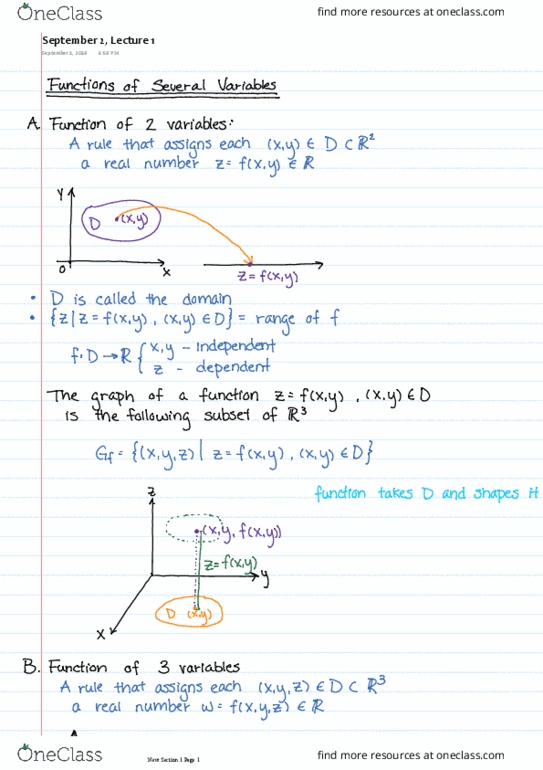 OneClass
find more resources at oneclass.com
September 2, Lecture 1
Functions of Several Variables
A. Function of 2 variables:
A rule that assigns each (x,y) ∈ D ⊂ R²
a real number z = f(x,y) ∈ R
y
D
(x,y)
0
x
z = f(x,y)
• D is called the domain
• {z | z = f(x,y), (x,y) ∈ D} = range of f
f: D → R { x,y - independent
z - dependent
The graph of a function z = f(x,y), (x,y) ∈ D
is the following subset of R³
Gf = {(x,y,z) | z = f(x,y), (x,y) ∈ D}
function takes D and shapes it
z
(x,y, f(x,y))
z = f(x,y)
y
D (x,y)
x
B. Function of 3 variables
A rule that assigns each (x,y,z) ∈ D ⊂ R³
a real number w = f(x,y,z) ∈ R
OneClass
Section 1 Page 1
find more resources at oneclass.com